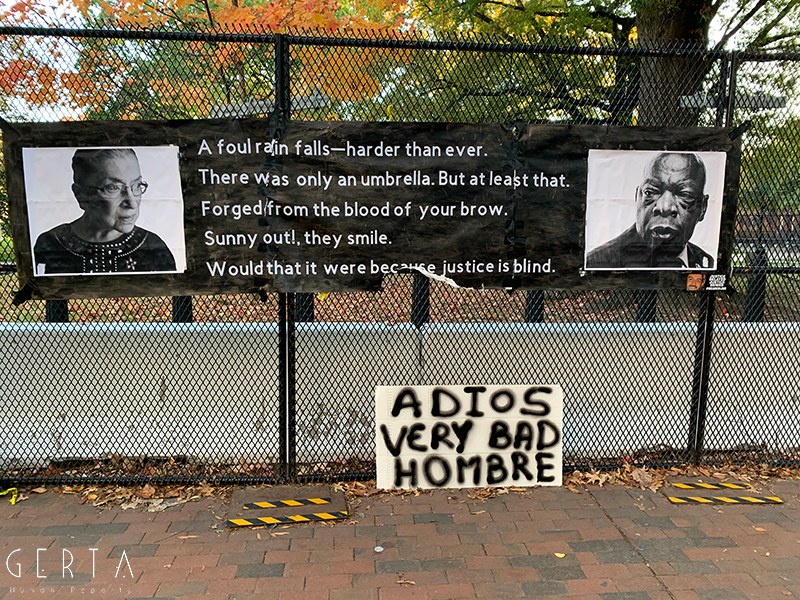 A foul rain falls—harder than ever.
There was only an umbrella. But at least that.
Forged from the blood of your brow.
Sunny out!, they smile.
Would that it were because justice is blind.
ADIOS
VERY BAD
HOMBRE
GERTA